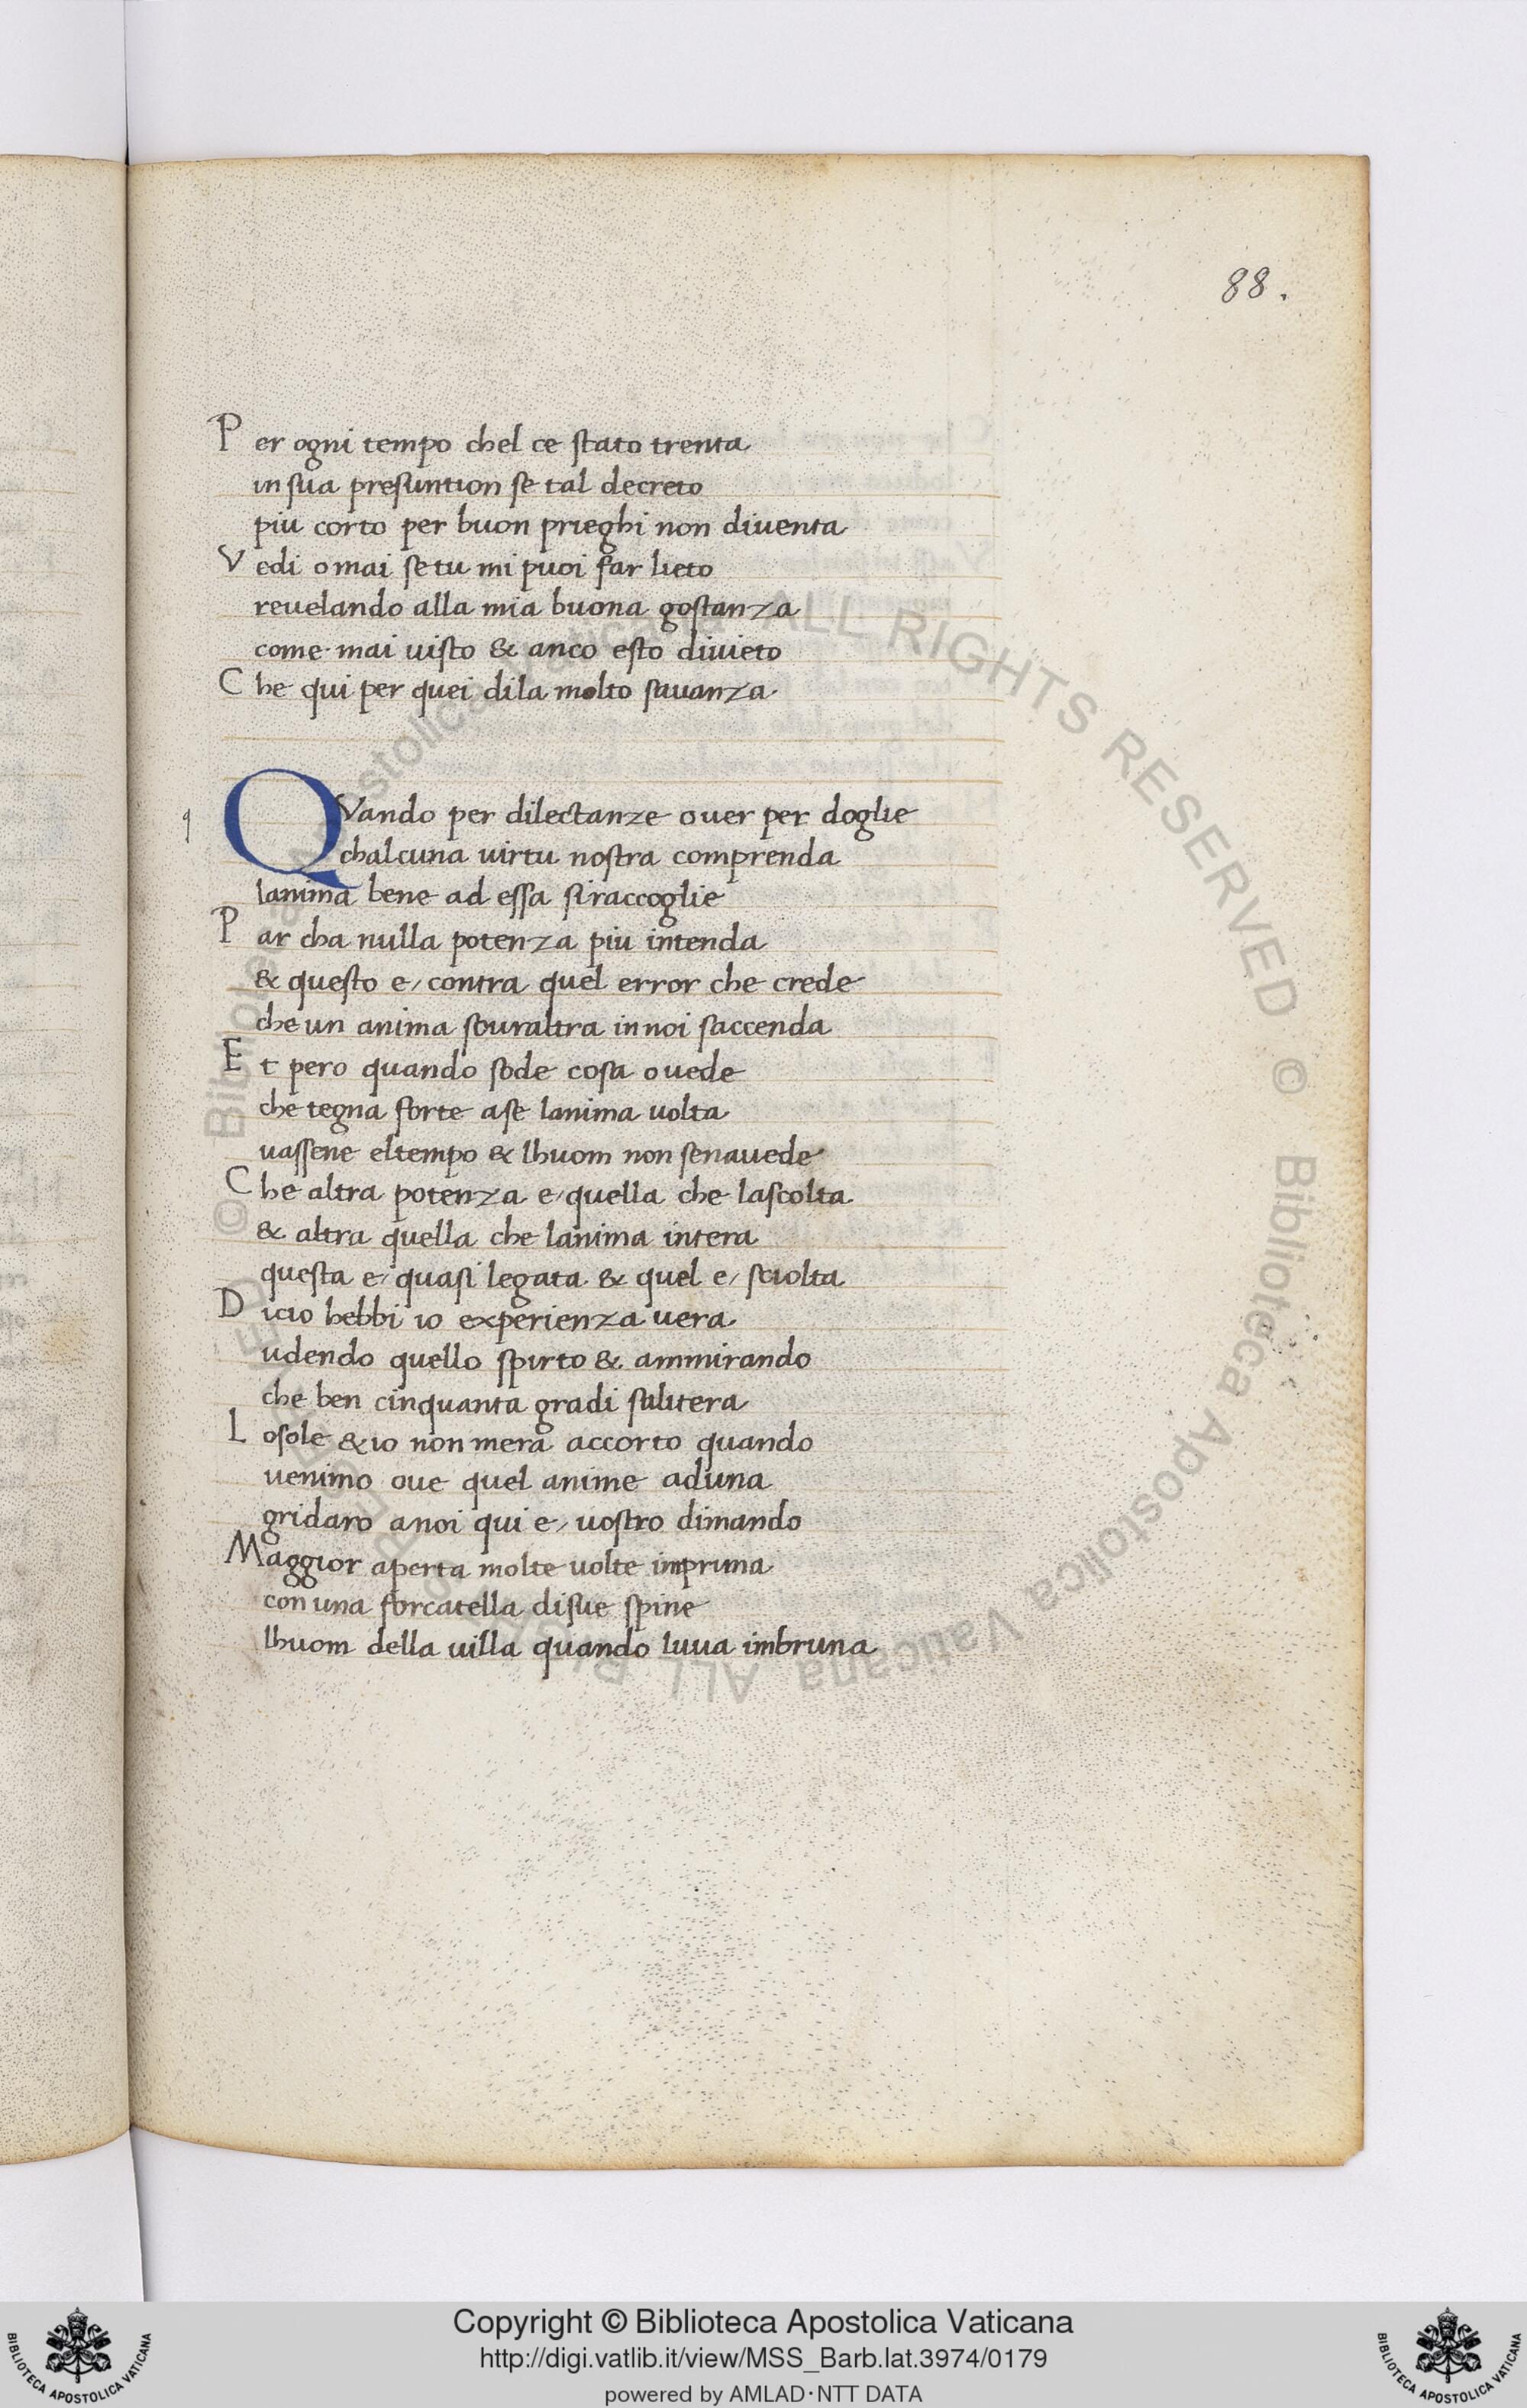 88.
Per ogni tempo chel ce stato trenta
in sua presuntion se tal decreto
piu corto per buon prieghi non diuenta
Vedi omai se tu mi puoi far lieto
reuelando alla mia buona gostanza
come mai uisto & anco esto diuieto
Che qui per quei dila molto sauanza
QVando per dilectanze ouer per doglie
chalcuna uirtu nostra comprenda
lanima bene ad essa siraccoglie
Par cha nulla potenza piu intenda
& questo e/ contra quel error che crede
che un anima souraltra in noi saccenda
Et pero quando sode cosa ouede
che tegna forte ase lanima uolta
uassene eltempo & lhuom non senauede
Che altra potenza e/ quella che lascolta
& altra quella che lanima intera
questa e/ quasi legata & quel e/ sciolta
Dicio hebbi io experienza uera
udendo quello spirto & ammirando
che ben cinquanta gradi salitera
Losole & io non mera accorto quando
uenimo oue quel anime aduna
gridaro anoi qui e/ uostro dimando
Maggior aperta molte uolte impruna
con una forcatella disue spine
lhuom della uilla quando luua imbruna
© Biblioteca Apostolica Vaticana ALL RIGHTS RESERVED © Biblioteca Apostolica Vaticana ALL RIGHTS RESERVED
Copyright © Biblioteca Apostolica Vaticana
http://digi.vatlib.it/view/MSS_Barb.lat.3974/0179
powered by AMLAD·NTT DATA
BIBLIOTECA APOSTOLICA VATICANA
BIBLIOTECA APOSTOLICA VATICANA